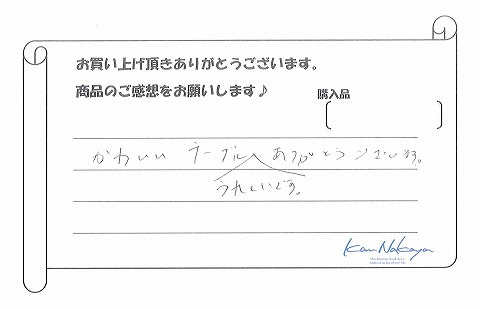 お買い上げ頂きありがとうございます。
商品のご感想をお願いします♪
購入品
かわいい テーブル ありがとうございます。
うれしいです。
Kan Nakayan